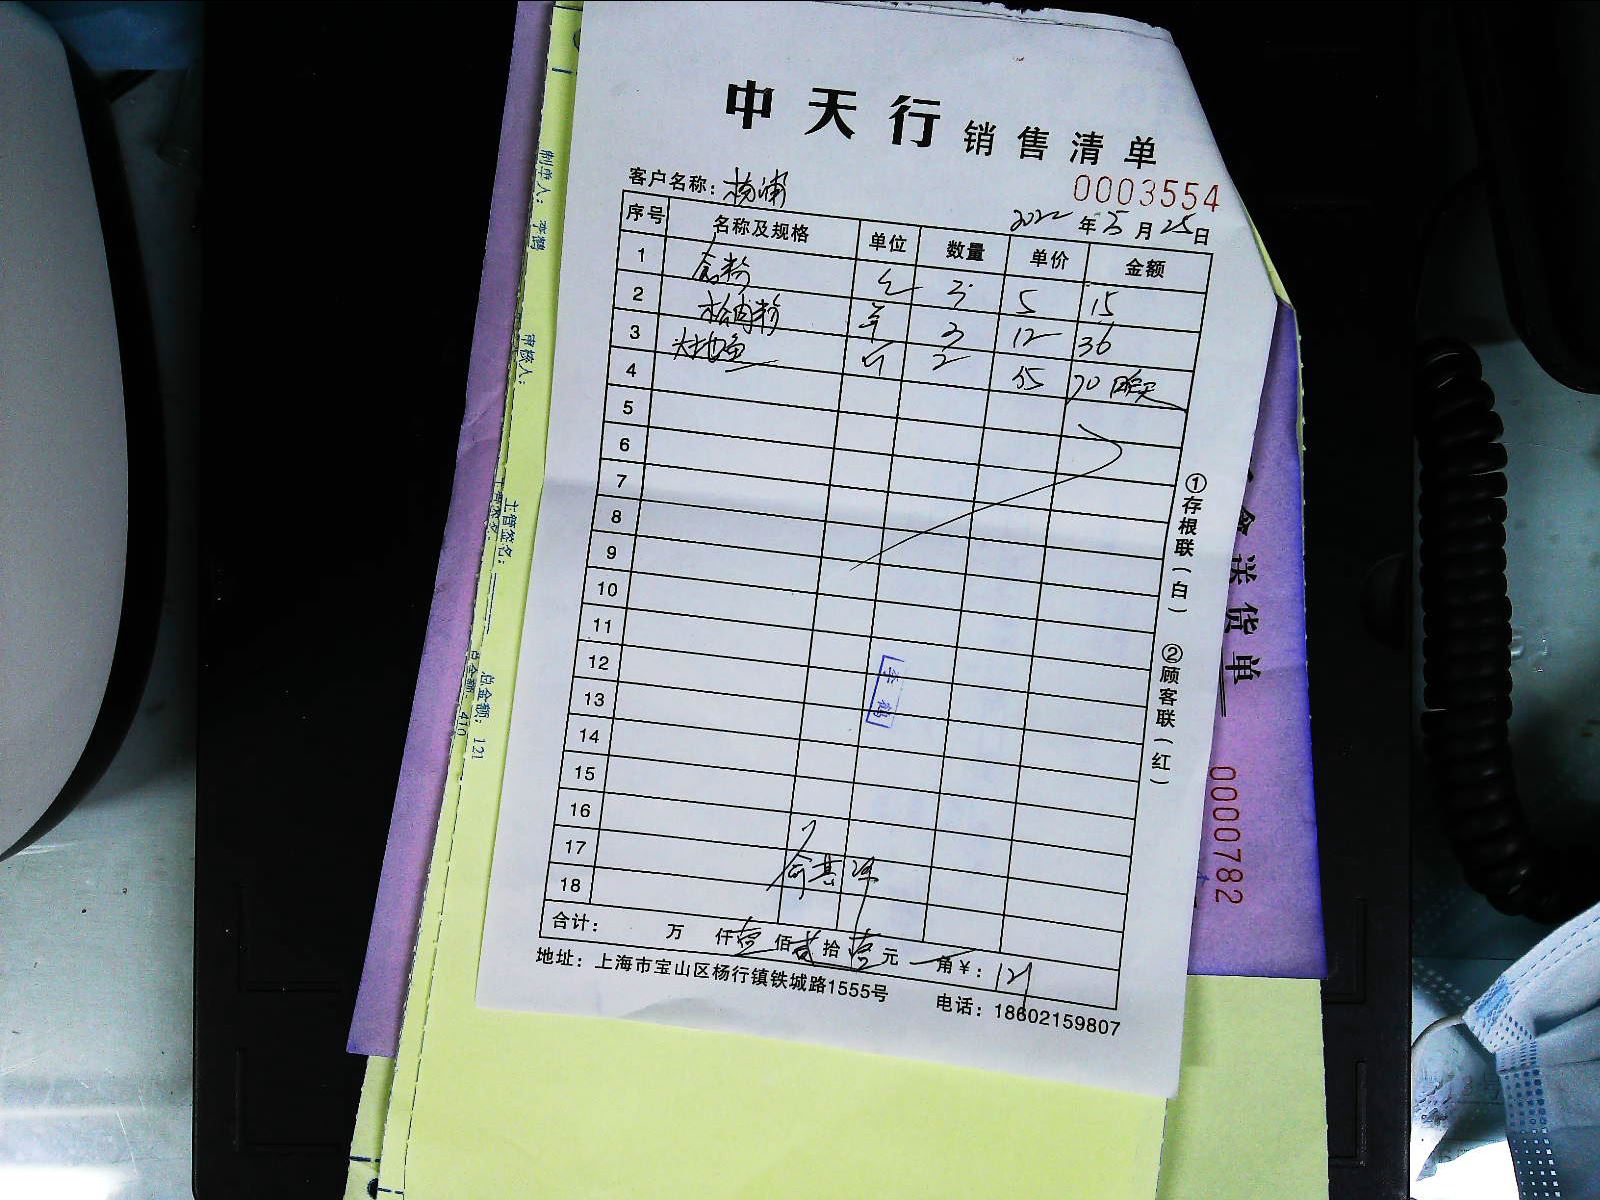 中天行销售清单
客户名称：杨浦
0003554
2022年5月25日
序号 名称及规格 单位 数量 单价 金额
1 食粉 3 5 15
2 松肉粉 3 12 36
3 大地鱼 斤 2 35 70 昨天
4
5
6
7
8
9
10
11
12
13
14
15
16
17
18
李鹤
合计： 万 仟壹佰贰拾壹元 角￥：121
地址：上海市宝山区杨行镇铁城路1555号 电话：18602159807
①存根联（白） ②顾客联（红）
制单人：李鹤
审核人：
主管签名：
总金额：121
总金额：410
送货单
0000782